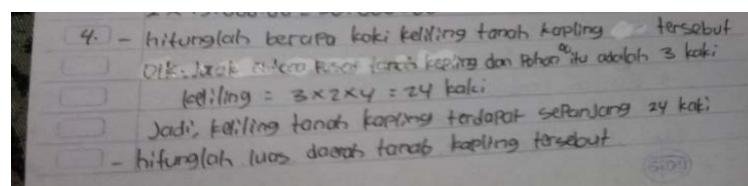 4. - hitunglah berapa kaki keliling tanah kapling tersebut
Dik: Jarak antara Pusat tanah kapling dan Pohon itu adalah 3 kaki
keliling = 3 x 2 x 4 = 24 kaki
Jadi, keliling tanah kapling terdapat sepanjang 24 kaki
- hitunglah luas daerah tanah kapling tersebut